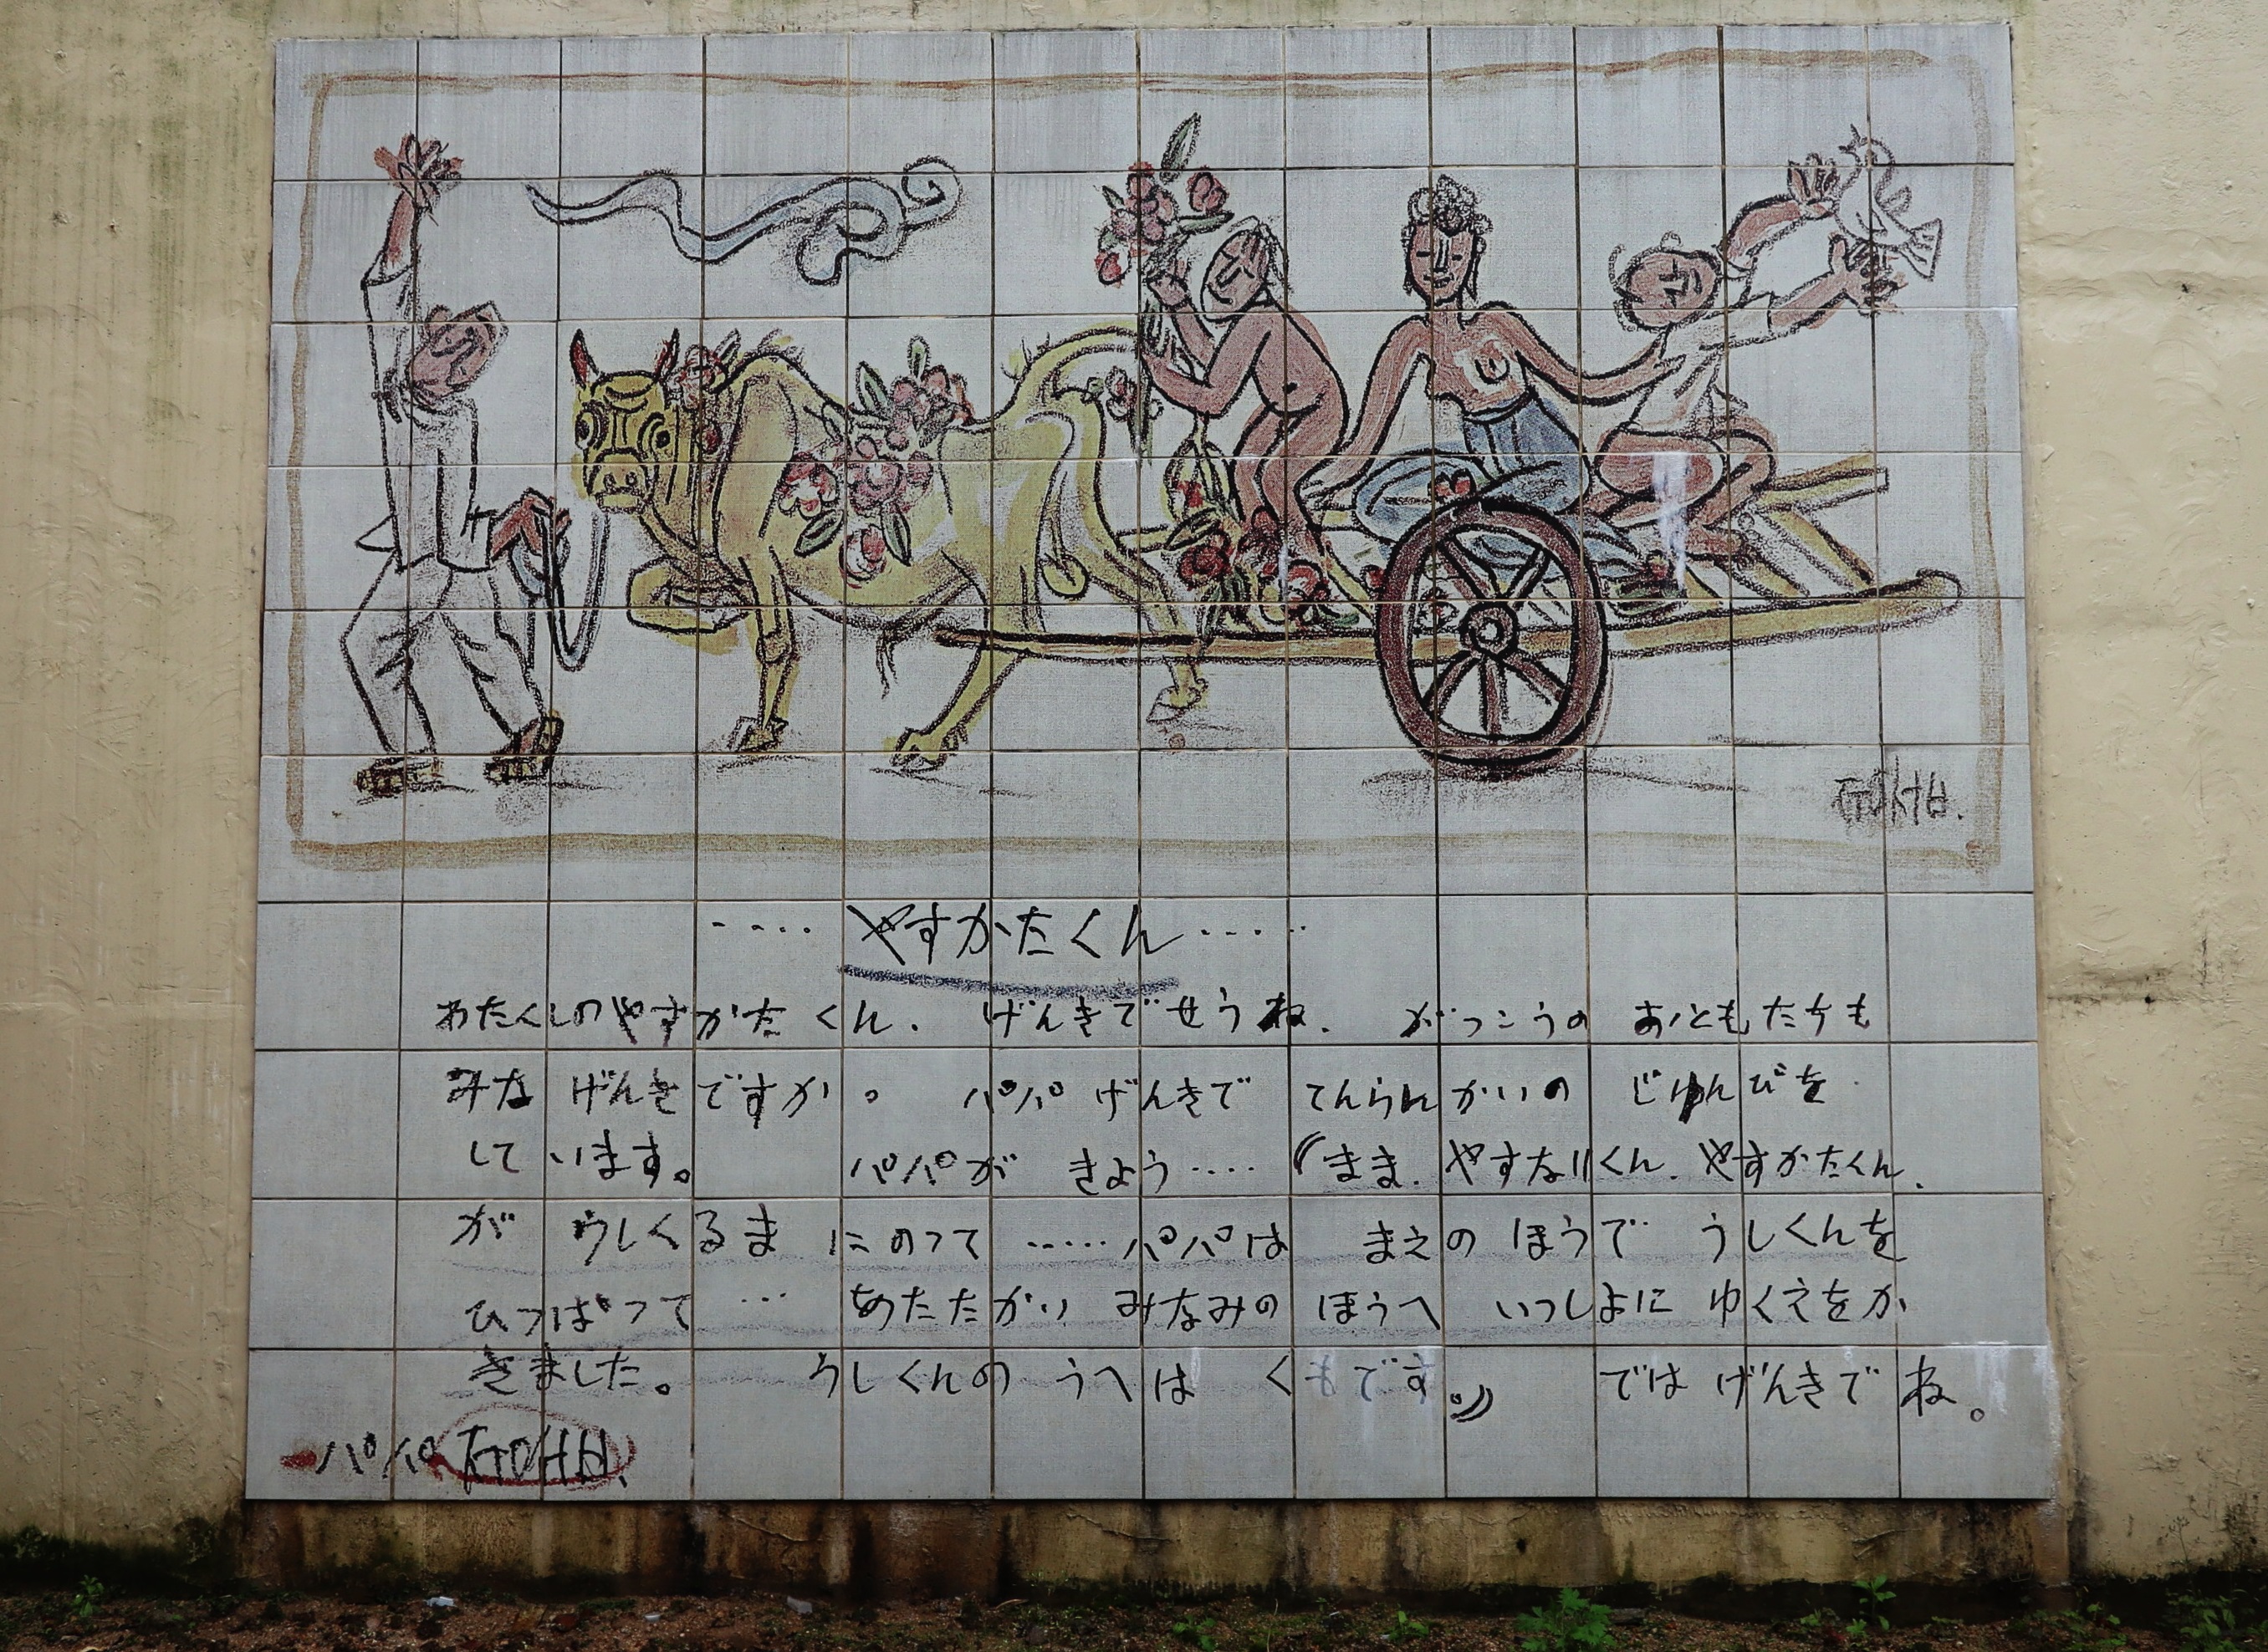 ㅈㅜㅇㅅㅓㅂ.
‥‥やすかたくん‥‥‥
わたくしのやすかたくん. げんきでせうね. がっこうの おともたちも
みな げんきですか。 パパ げんきで てんらんかいの じゅんびを
しています。 パパが きよう‥‥(まま. やすなりくん. やすかたくん.
が うしくるま にのって ‥‥‥パパは まえの ほうで うしくんを
ひっぱって … あたたかい みなみの ほうへ いつしよに ゆくえをか
きました。 うしくんの うへは くもです。) では げんきでね。
パパ ㅈㅜㅇㅅㅓㅂ.